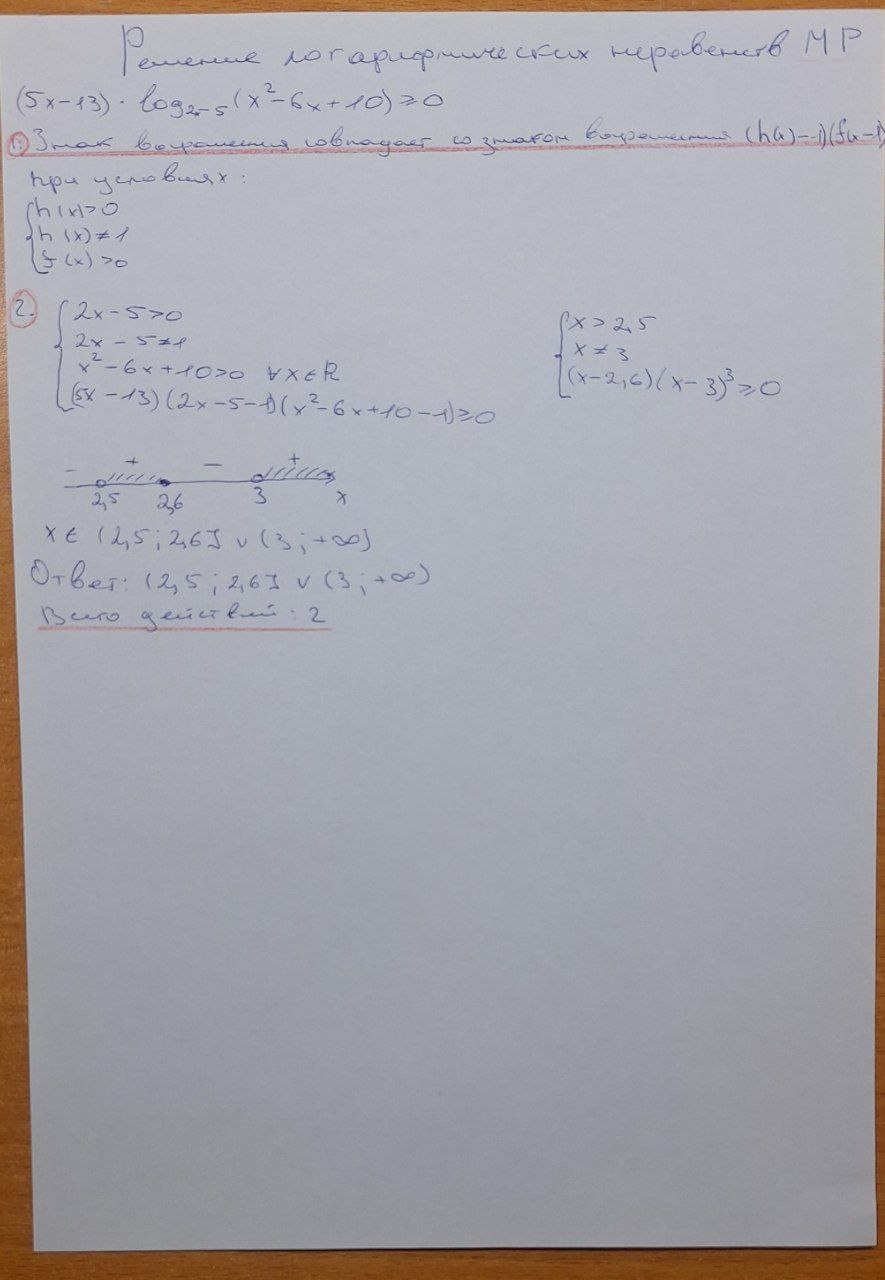 Решение логарифмических неравенств МР
(5x-13) · log₂ₓ₋₅(x²-6x+10)≥0
1. Знак выражения совпадает со знаком выражения (h(x)-1)(f(x-1)
при условиях:
{h(x)>0
h(x)≠1
f(x)>0
2. {2x-5>0
2x-5≠1
x²-6x+10>0 ∀x∈R
(5x-13)(2x-5-1)(x²-6x+10-1)≥0
{x>2,5
x≠3
(x-2,6)(x-3)³≥0
- + - +
2,5 2,6 3 x
x∈(2,5;2,6]∪(3;+∞)
Ответ: (2,5;2,6]∪(3;+∞)
Всего действий: 2